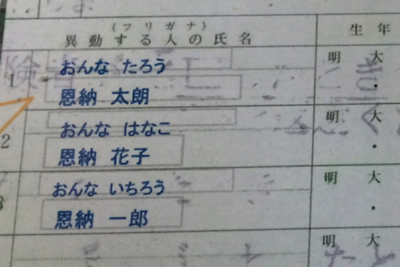 (フリガナ)
異動する人の氏名
生年
1
おんな たろう
恩納 太朗
明 大
・
2
おんな はなこ
恩納 花子
明 大
・
3
おんな いちろう
恩納 一郎
明 大
・
明 大